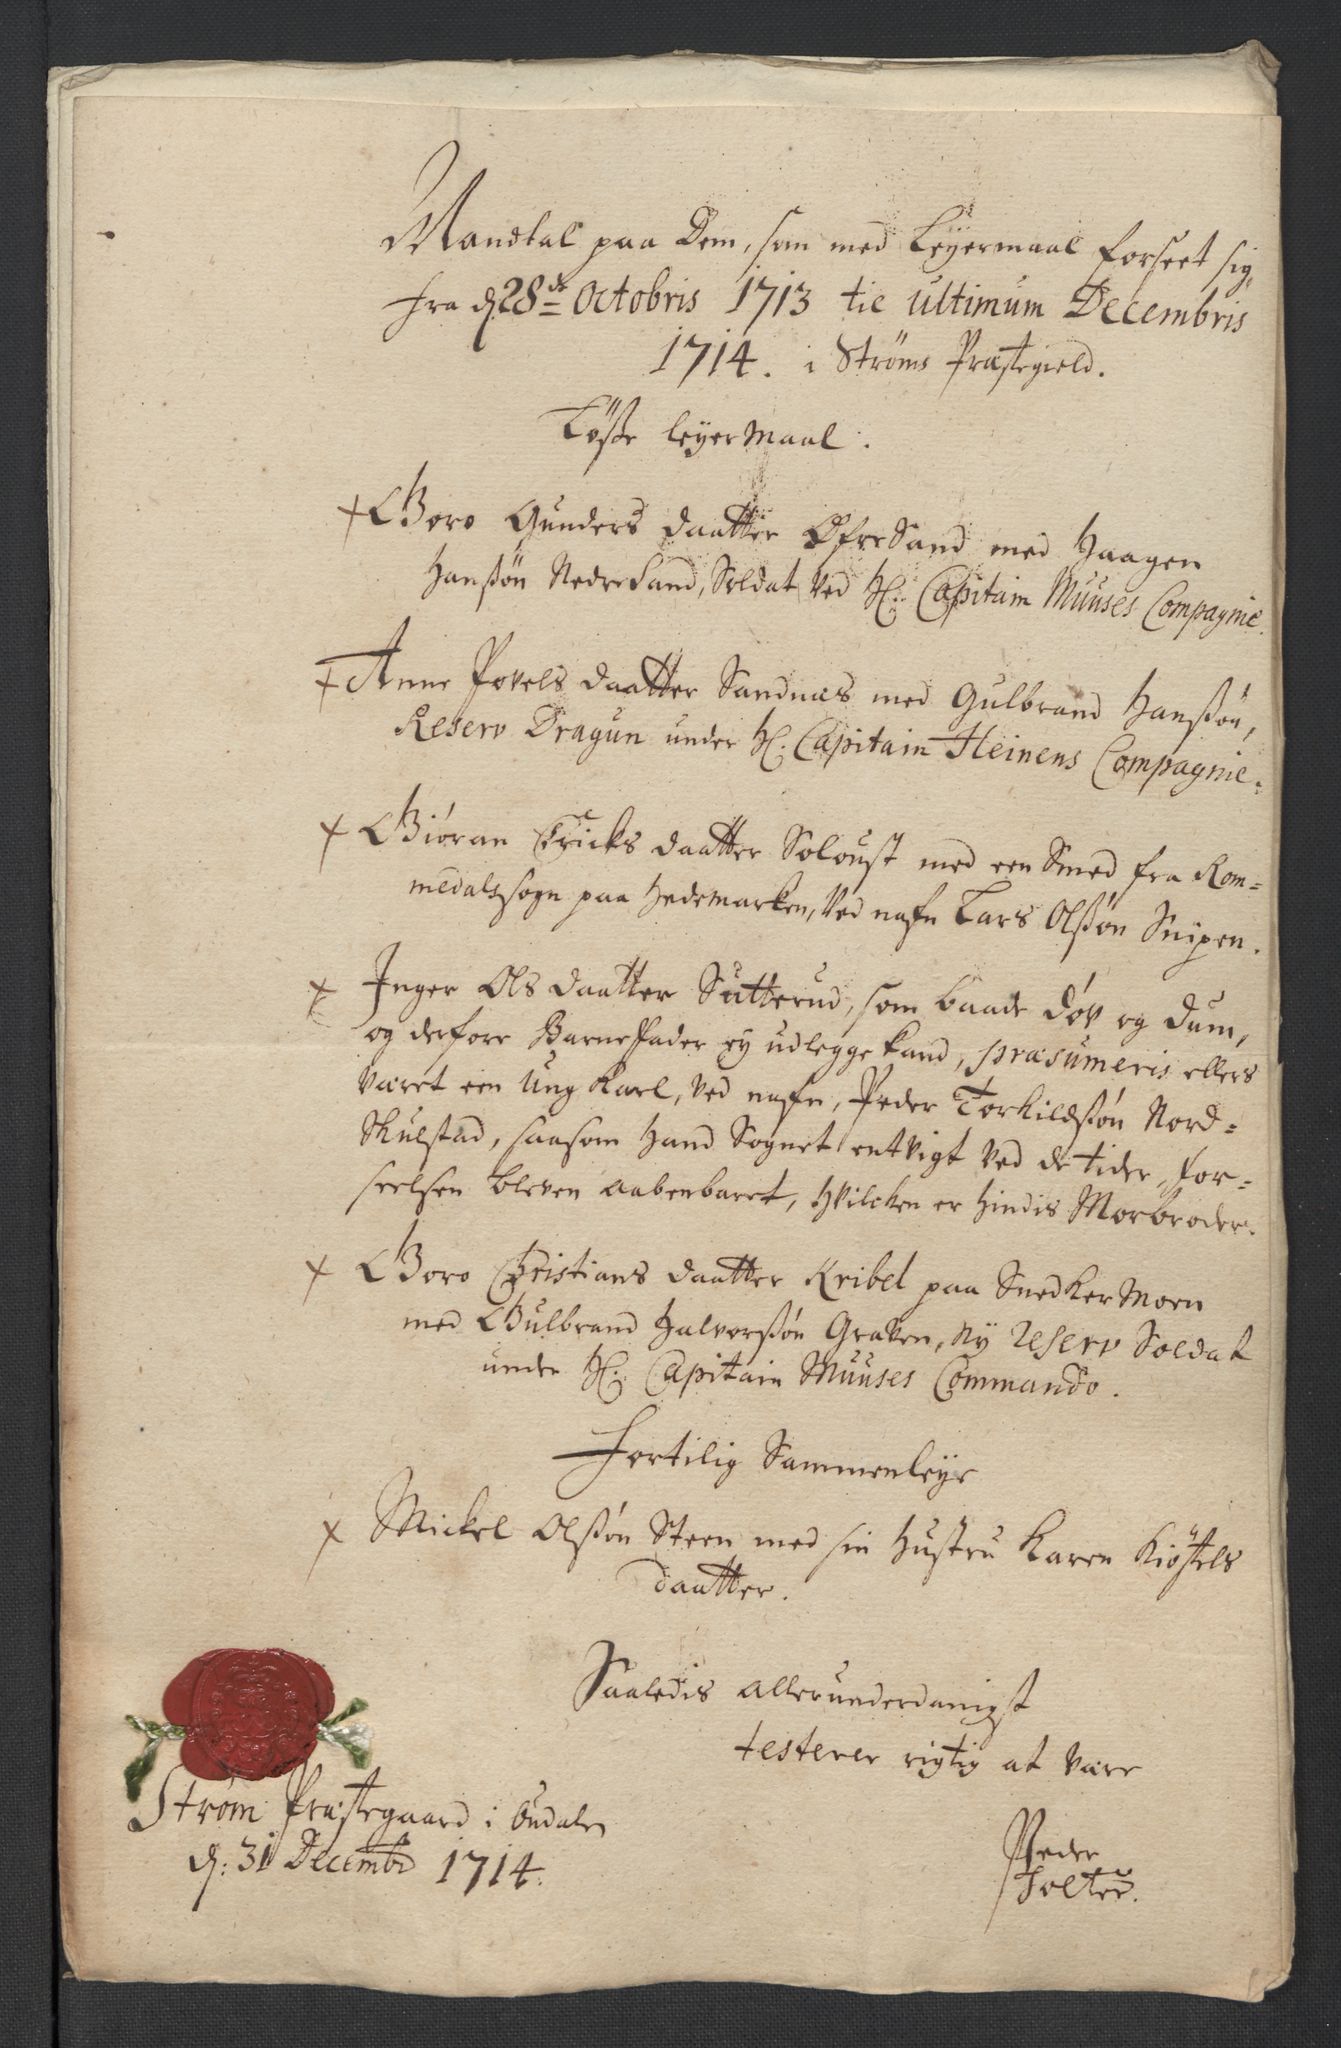 Mandtal paa Dem, som med Leyermaal forseet sig,
fra d. 28de Octobris 1713 til ultimum Decembris
1714. i Ströms Præstegield.
Löse leyermaal.
+ Goro Gunders daatter Øfre Sand med Haagen
Hanssön Nedre Sand, Soldat ved H: Capitain Muuses Compagnie.
+ Anne Povels daatter Sandnæs med Gulbrand Hanssön,
Reserv Dragun under H. Capitain Heinens Compagnie.
+ Giöran Ericks daatter Soloust med een Smed fra Rom=
medals sogn paa Hedemarken, ved nafn Lars Olssön Snipen.
+ Inger Ols daatter Sutterud, som baade döv og dum,
og derfore Barnefader ey udlegge kand, præsumeris ellers
været een ung karl, ved nafn, Peder Torkildssön Nord=
Skulstad, saasom hand Sognet entvigt ved de tider, for=
seelsen bleven aabenbaret, hvilcken er hindis Morbroder.
+ Goro Christians daatter Kribel paa Snedker Moen
med Gulbrand Halvorssön Graven, Ny reserv Soldat
under H: Capitain Muuses Commando.
Fortilig Sammenleye
+ Mickel Olssön Steen med sin Hustru Karen Kiöstels
daatter.
Saaledis allerunderdanigst
testerer rigtig at være
Ström Præstegaard i Oudalen
d: 31 Decembr 1714.
Peder
Holter.